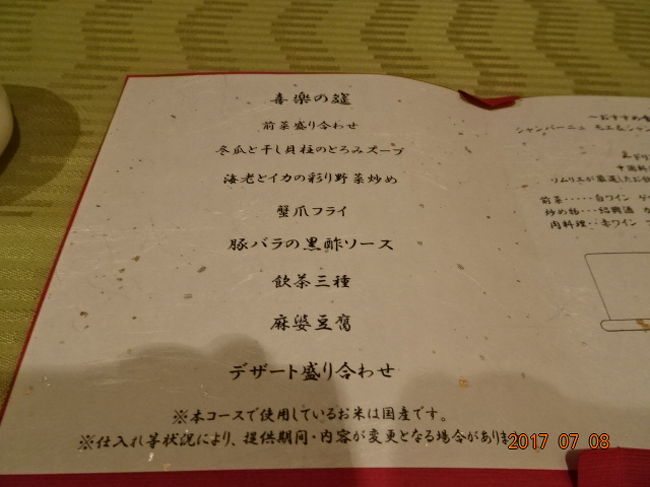 喜楽の縁
前菜盛り合わせ
冬瓜と干し貝柱のとろみスープ
海老とイカの彩り野菜炒め
蟹爪フライ
豚バラの黒酢ソース
飲茶三種
麻婆豆腐
デザート盛り合わせ
※本コースで使用しているお米は国産です。
※仕入れ等状況により、提供期間・内容が変更となる場合があります
~おすすめ
シャンパーニュ モエ&シャン
中国料
ソムリエが厳選したお飲
前菜・・・・・白ワイン
炒め物・・・紹興酒
肉料理・・赤ワイン
2017 07 08